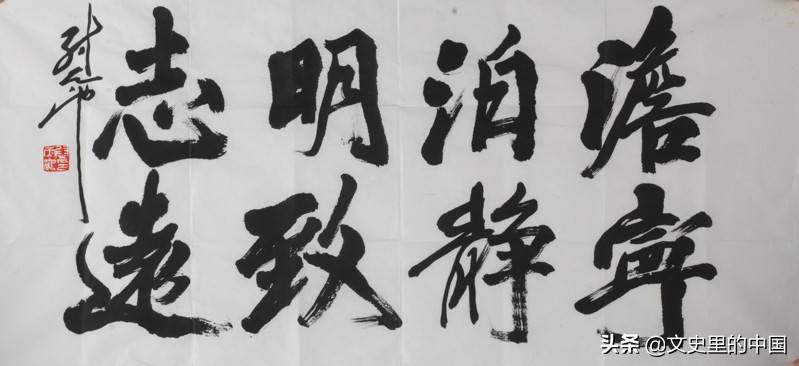 澹泊明志
寧静致遠
头条 @文史里的中国